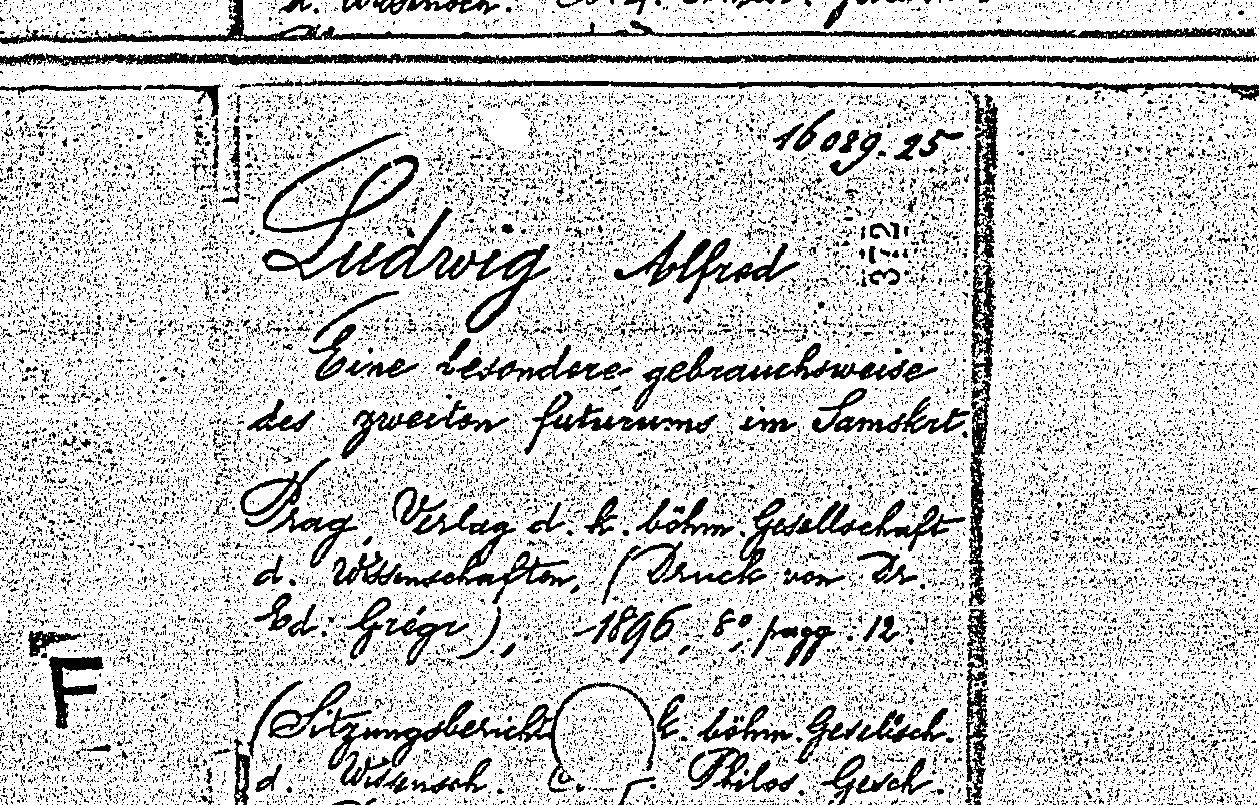 d. Wissensch.
16089.25
372
Ludwig Alfred
Eine besondere gebrauchsweise
des zweiten futurums im Samskrt.
Prag, Verlag d. k. böhm. Gesellschaft
d. Wissenschaften, (Druck von Dr.
Ed. Grégr), 1896, 8°, pagg. 12.
F
(Sitzungsbericht k. böhm. Gesellsch.
d. Wissensch. Philos. Gesch.